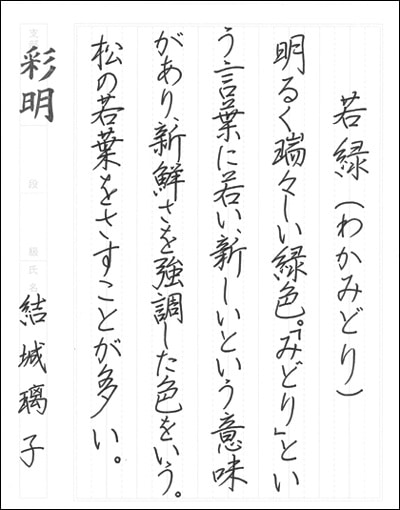 若緑(わかみどり)
明るく瑞々しい緑色。「みどり」とい
う言葉に若い、新しいという意味
があり、新鮮さを強調した色をいう。
松の若葉をさすことが多い。
支
彩明
段
級
氏名
結城璃子